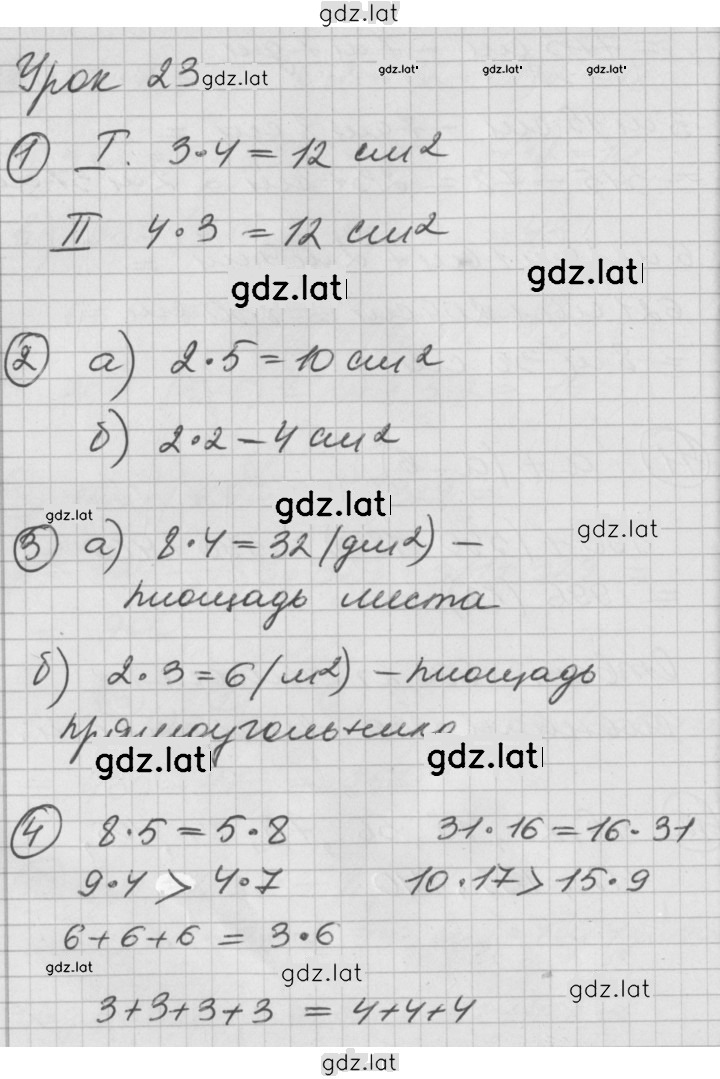 gdz.lat
Урок 23 gdz.lat gdz.lat gdz.lat gdz.lat
1 I. 3·4=12 см2
II 4·3=12 см2
gdz.lat gdz.lat
2 а) 2·5=10 см2
б) 2·2-4 см2
gdz.lat gdz.lat gdz.lat
3 а) 8·4=32 (дм2) -
площадь листа
б) 2·3=6 (м2) -площадь
прямоугольника
gdz.lat gdz.lat
4 8·5=5·8 31·16=16·31
9·4>4·7 10·17>15·9
6+6+6=3·6
gdz.lat gdz.lat gdz.lat
3+3+3+3=4+4+4
gdz.lat